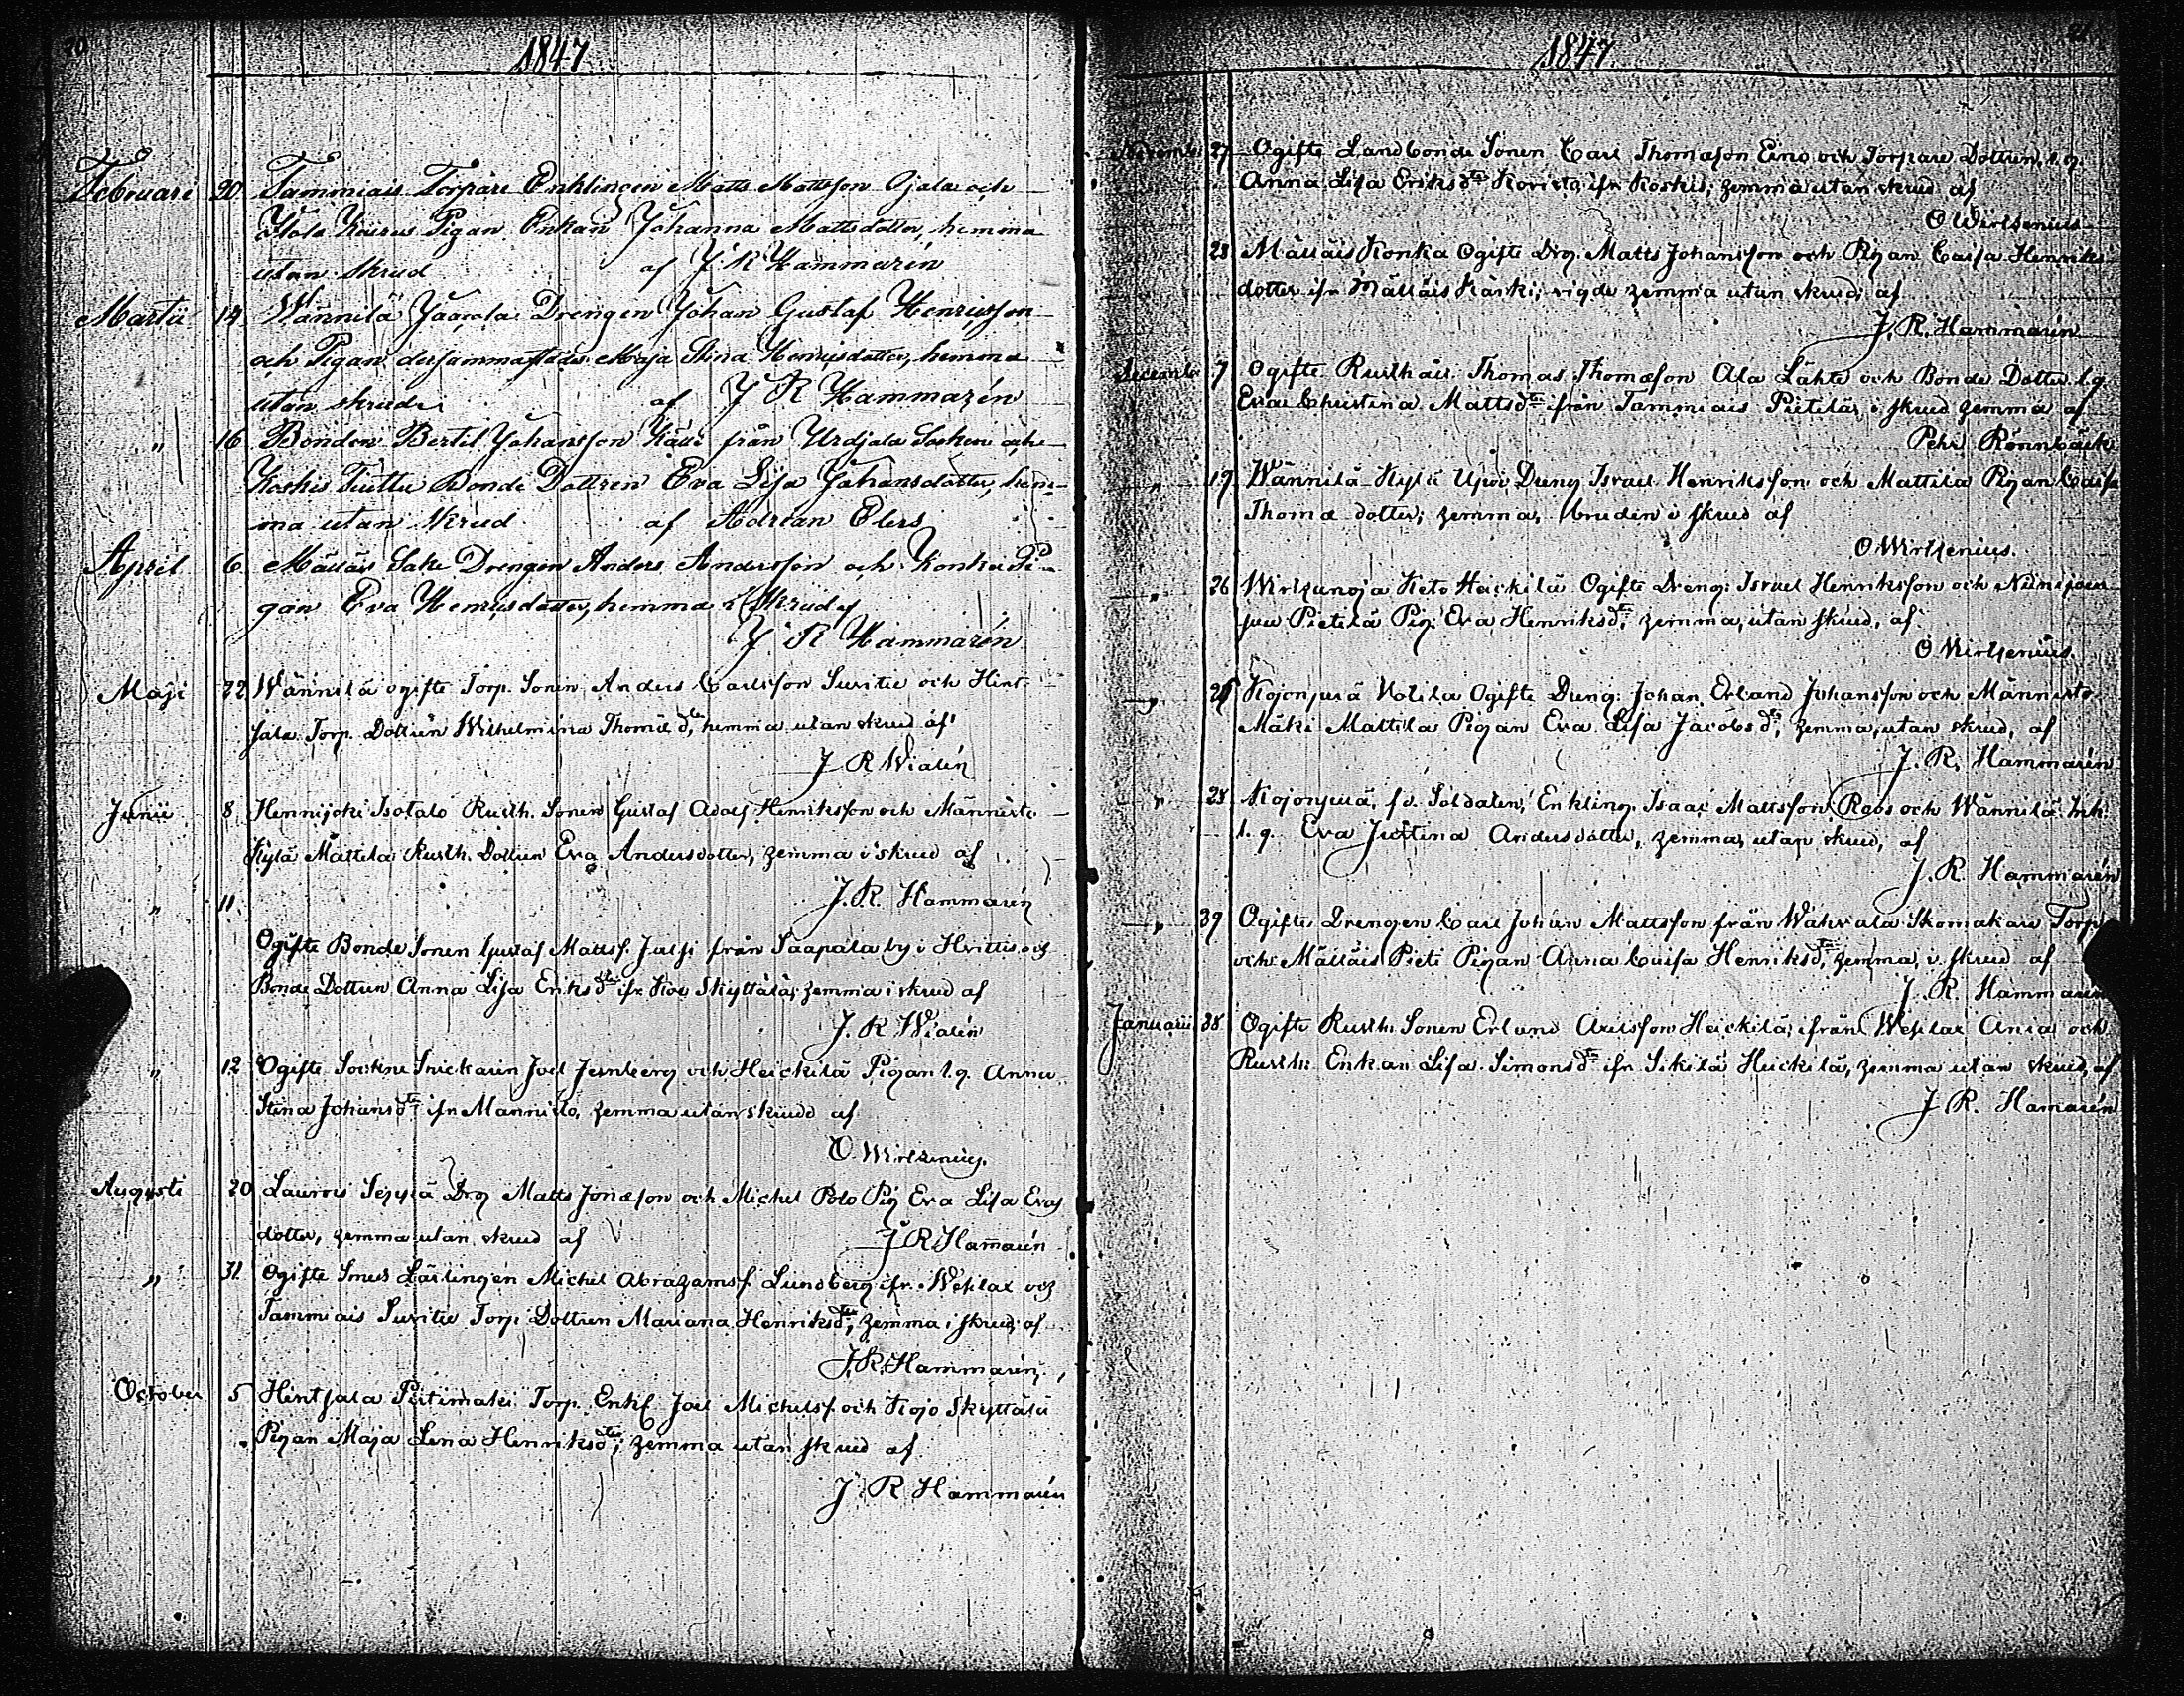 70
1847
Februari 20 Tammiais Torpare Enklingen Matts Mattsson Ojala och
Kairus Pigan Enkan Johanna Mattsdotter, hemma
utan skrud af J R Hammarén
Martii 14 Wännilä Jaarala Drengen Johan Gustaf Henricsson
och Pigan dersammastädes Maja Stina Henricsdotter, hemma
utan skrud af J R Hammarén
" 16 Bonden Bertil Johansson från Urdjala Socken och
Koskis Tuittu Bonde Dottren Eva Lisa Johansdotter, hem-
ma utan skrud af Adrian Elers
April 6 Mällais Sake Drengen Anders Andersson och Konka Pi-
gan Eva Henricsdotter, hemma i Skrud af
J. R Hammarén
Maji 22 Wännilä ogifte Torp. Sonen Anders Carlsson Suvitie och Hint-
sala Torp. Dottren Wilhelmina Thomæ dtr, hemma utan skrud af
J R Wialén
Junii 8 Hennijoki Isotalo Rusth. Sonen Gustaf Adolf Henriksson och Männistö
Kylä Mattila Rusth. Dottren Eva Andersdotter, hemma i skrud af
J. R. Hammarén
" 11.
Ogifte Bonde Sonen Gustaf Mattss. från Saapala by i Hvittis och
Bonde Dottren Anna Lisa Eriksdtr ifr. Skyttälä, hemma i skrud af
J. R Wialén
" 12 Ogifte Sockne Snickaren Joel Jernberg och Heickilä Pigan l.q. Anna
Stina Johansdtr ifr Mannisto, hemma utan skrud af
O. Wirtzenius.
Augusti 20 Lauroi Seppä Drg Matts Jonæson och Michel Polo Pig Eva Lisa Evas
dotter, hemma utan skrud af J R Hamarén
" 31 Ogifte Smeds Lärlingen Michel Abrahamss. Lundberg ifr. Wehlax och
Tammiais Suvitie Torp. Dottren Mariana Henriksdtr, hemma i skrud, af
J. R. Hammarén
October 5 Hintsala Torp. Enkl. Joel Michelss. och Kojo Skyttälä
Pigan Maja Lena Henriksdtr; hemma utan skrud af
J. R Hammarén
1847.
Novemb. 27 Ogifte Landbonde Sonen Carl Thomasson Eino och Torpare Dottren, l.q.
Anna Lisa Eriksdtr Koivisto ifr Koskis; hemma utan skrud af
O Wirtzenius
28 Mällais Konka Ogifte Drg. Matts Johansson och Pigan Caisa Henriks
dotter ifr Mällais Kärki; vigde hemma utan skrud; af
J. R. Hammarén
December 7 Ogifte Rusthåll. Thomas Thomasson Ala Lähte och Bonde Dotter l.q.
Eva Christina Mattsdtr från Tammiais Pietilä, i skrud hemma af
Pehr Rönnbäck
" 19 Wännilä Kylä Dreng Israel Henriksson och Mattila Pigan Caisa
Thomæ dotter; hemma, bruden i skrud af
O Wirtzenius.
" 26 Wirtzanoja Keto Heickilä Ogifte Dreng. Israel Henriksson och
Pietilä Pig. Eva Henriksdtr, hemma, utan skrud, af
O Wirtzenius.
" Kojonperä Ogifte Dreng. Johan Erland Johansson och Männistö
Mäki Mattila Pigan Eva Lisa Jacobsdtr, hemma, utan skrud, af
J. R. Hammarén
" 28 Kojonperä, f.d. Soldaten, Enkling. Isaac Mattsson Roos och Wännilä Inh.
l. q. Eva Justina Andersdotter, hemma, utan skrud, af
J. R. Hammarén
" 39 Ogifte Drengen Carl Johan Mattsson från Skomakare Torp
och Mällais Pieti Pigan Anna Caisa Henriksdtr, hemma, i skrud af
J. R. Hammarén
Januarii 38 Ogifte Rusth. Sonen Erland Heickilä, ifrån Wehlax och
Rusth. Enkan Lisa Simonsdtr ifr. Sikilä Heickilä, hemma utan skrud, af
J. R. Hamarén